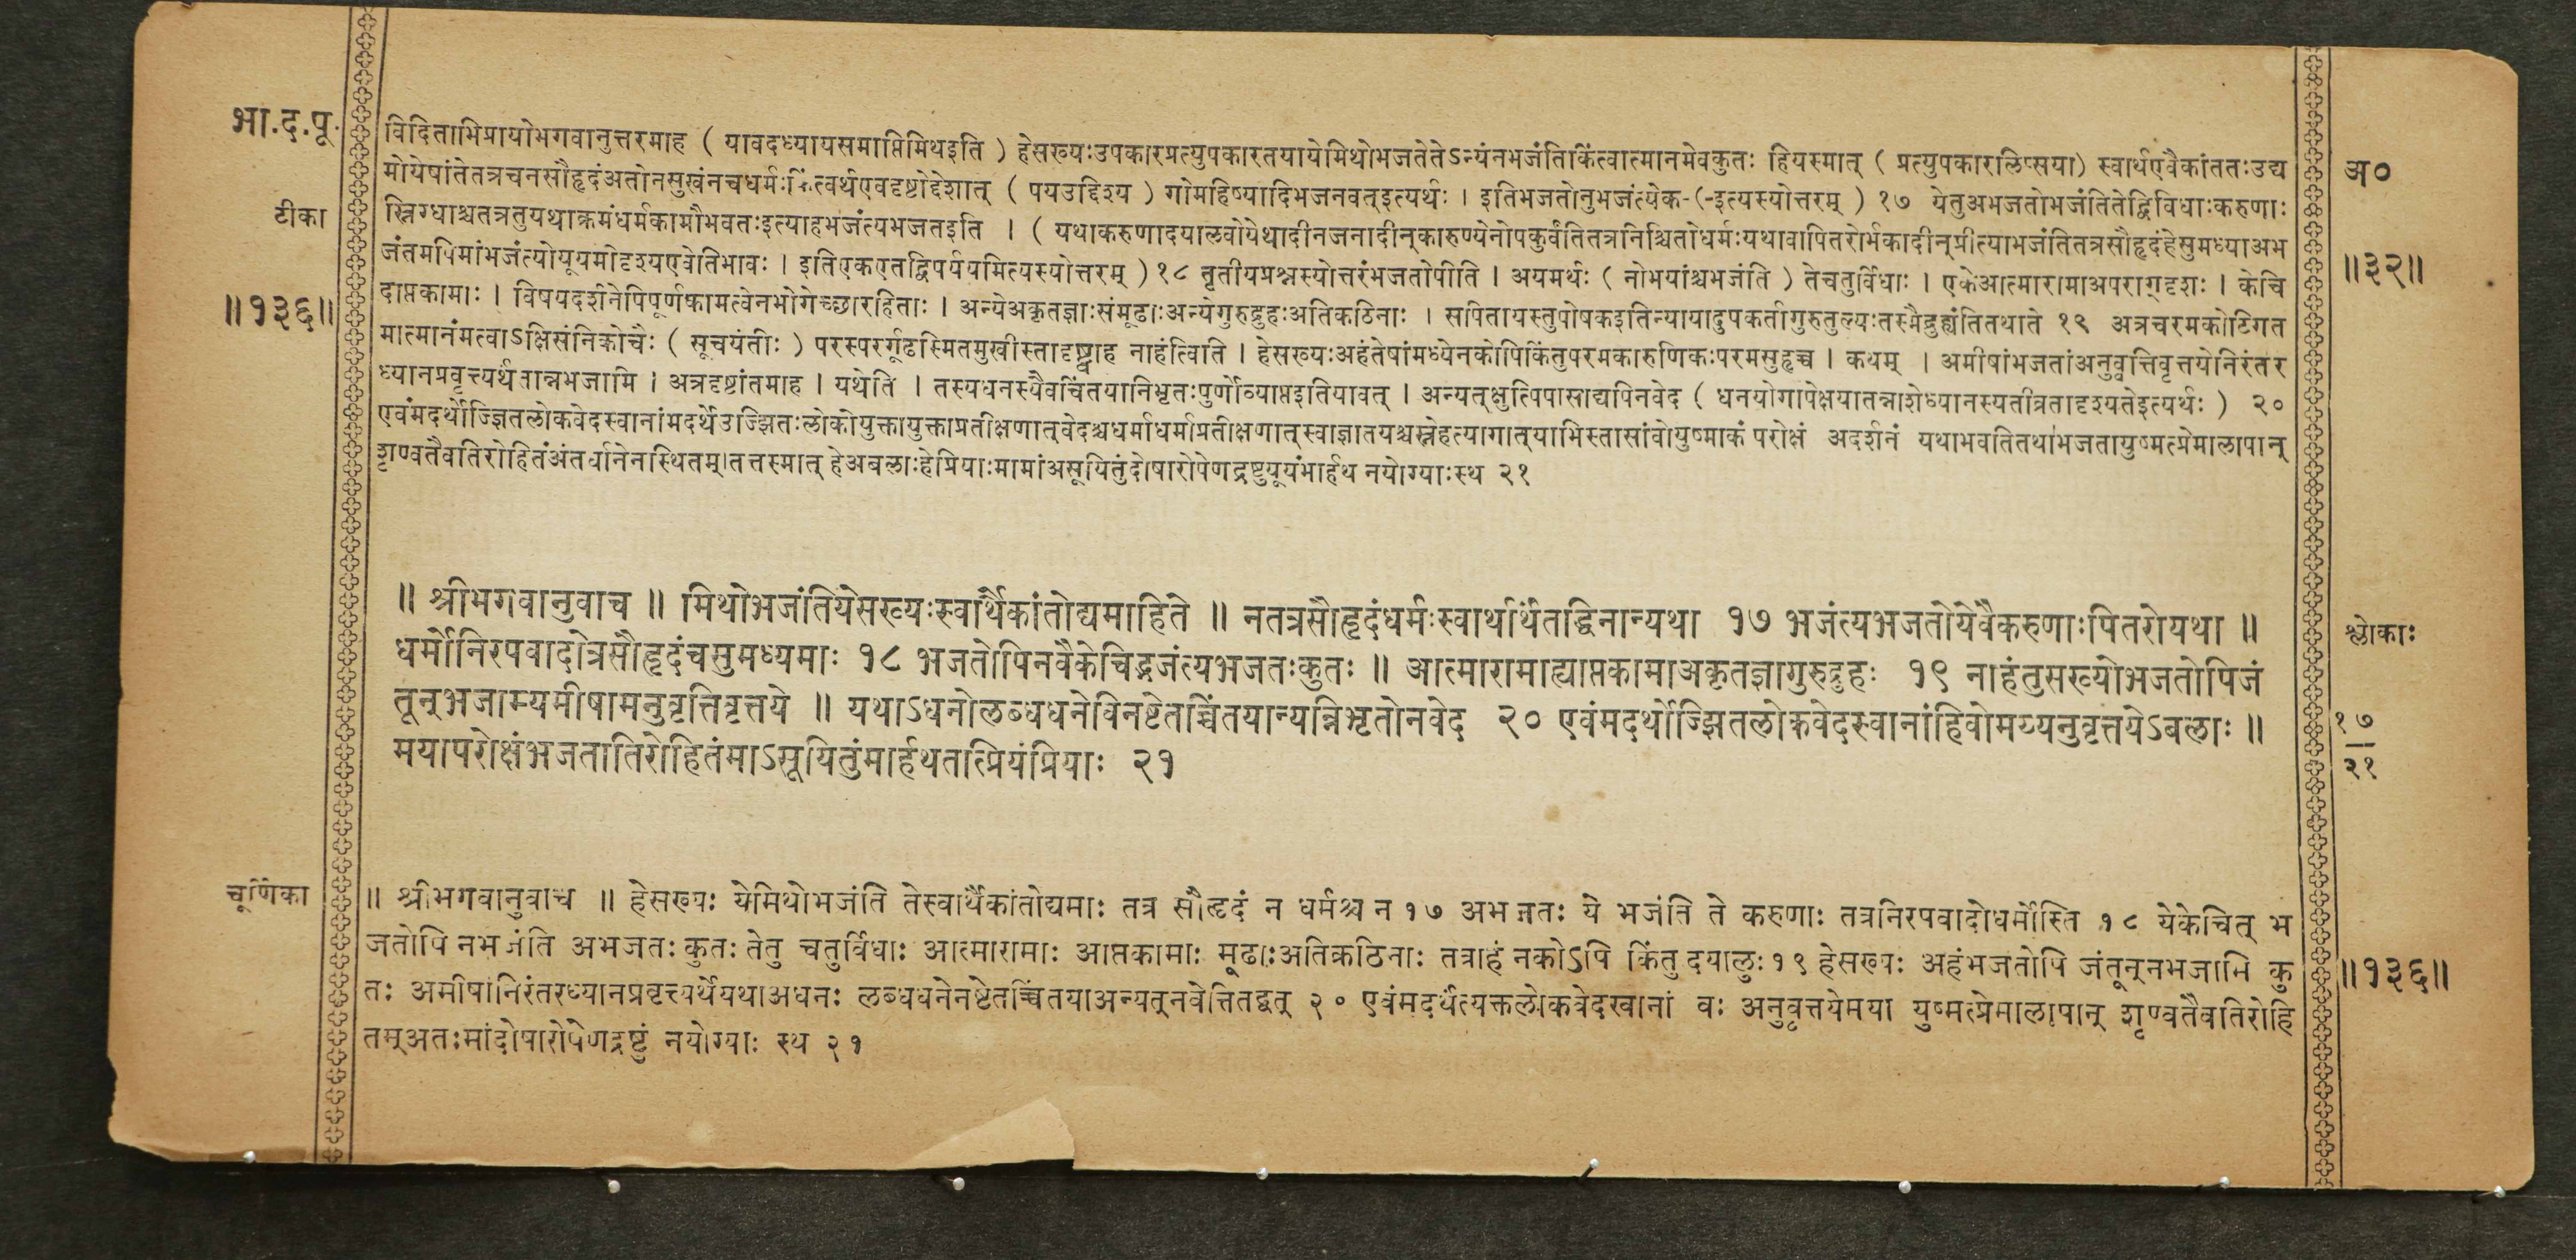 भा.द.पू.
टीका
॥१३६॥
विदिताभिप्रायोभगवानुत्तरमाह ( यावदध्यायसमाप्तिमिथइति ) हेसख्यःउपकारप्रत्युपकारतयायेमिथोभजतेतेऽन्यंनभजंतिकिंत्वात्मानमेवकुतः हियस्मात् ( प्रत्युपकारालिप्सया) स्वार्थएवैकांततःउद्य
मोयेषांतेतत्रचनसौहृदंअतोनसुखंनचधर्मःकिंत्वर्थएवदृष्टोद्देशात् ( पयउद्दिश्य ) गोमहिष्यादिभजनवत्इत्यर्थः । इतिभजतोनुभजंत्येक-(-इत्यस्योत्तरम् ) १७ येतुअभजतोभजंतितेद्विविधाःकरुणाः
स्निग्धाश्चतत्रतुयथाक्रमंधर्मकामौभवतःइत्याहभजंत्यभजतइति । ( यथाकरुणादयालवोयेथादीनजनादीन्कारुण्येनोपकुर्वंतितत्रनिश्चितोधर्मःयथावापितरोर्भकादीन्प्रीत्याभजंतितत्रसौहृदंहेसुमध्याअभ
जंतमपिमांभजंत्योयूयमीदृश्यएवेतिभावः । इतिएकएतद्विपर्ययमित्यस्योत्तरम् ) १८ तृतीयप्रश्नस्योत्तरंभजतोपीति । अयमर्थः ( नोभयांश्चभजंति ) तेचतुर्विधाः । एकेआत्मारामाअपराग्दृशः । केचि
दाप्तकामाः । विषयदर्शनेपिपूर्णकामत्वेनभोगेच्छारहिताः । अन्येअकृतज्ञाःसंमूढाःअन्येगुरुद्रुहःअतिकठिनाः । सपितायस्तुपोषकइतिन्यायादुपकर्तागुरुतुल्यःतस्मैद्रुह्यंतितथाते १९ अत्रचरमकोटिगत
मात्मानंमत्वाऽक्षिसंनिकोचैः ( सूचयंतीः ) परस्परगूढस्मितमुखीस्तादृष्ट्वाह नाहंत्विति । हेसख्यःअहंतेषांमध्येनकोपिकिंतुपरमकारुणिकःपरमसुहृच्च । कथम् । अमीषांभजतांअनुवृत्तिवृत्तयेनिरंतर
ध्यानप्रवृत्त्यर्थंतान्नभजामि । अत्रदृष्टांतमाह । यथेति । तस्यधनस्यैवचिंतयानिभृतःपुर्णोव्याप्तइतियावत् । अन्यत्क्षुत्पिपासाद्यपिनवेद ( धनयोगापेक्षयातन्नाशेध्यानस्यतीव्रतादृश्यतेइत्यर्थः ) २०
एवंमदर्थोज्झितलोकवेदस्वानांमदर्थेउज्झितःलोकोयुक्तायुक्ताप्रतीक्षणात्वेदश्चधर्माधर्माप्रतीक्षणात्स्वाज्ञातयश्चस्नेहत्यागात्याभिस्तासांवोयुष्माकं परोक्षं अदर्शनं यथाभवतितथाभजतायुष्मत्प्रेमालापान्
शृण्वतैवतिरोहितंअंतर्धानेनस्थितम्।तत्तस्मात् हेअबलाःहेप्रियाःमामांअसूयितुंदोषारोपेणद्रष्टुंयूयंमार्हथ नयोग्याःस्थ २१
अ०
॥३२॥
॥ श्रीभगवानुवाच ॥ मिथोभजंतियेसख्यःस्वार्थैकांतोद्यमाहिते ॥ नतत्रसौहृदंधर्मःस्वार्थार्थंतद्धिनान्यथा १७ भजंत्यभजतोयेवैकरुणाःपितरोयथा ॥
धर्मोनिरपवादोत्रसौहृदंचसुमध्यमाः १८ भजतोपिनवैकेचिद्भजंत्यभजतःकुतः ॥ आत्मारामाह्याप्तकामाअकृतज्ञागुरुद्रुहः १९ नाहंतुसख्योभजतोपिजं
तून्भजाम्यमीषामनुवृत्तिवृत्तये ॥ यथाऽधनोलब्धधनेविनष्टेतच्चिंतयान्यन्निभृतोनवेद २० एवंमदर्थोज्झितलोकवेदस्वानांहिवोमय्यनुवृत्तयेऽबलाः ॥
मयापरोक्षंभजतातिरोहितंमाऽसूयितुंमार्हथतत्प्रियंप्रियाः २१
श्लोकाः
१७
२१
चूर्णिका
॥ श्रीभगवानुवाच ॥ हेसख्यः येमिथोभजंति तेस्वार्थैकांतोद्यमाः तत्र सौहृदं न धर्मश्च न १७ अभजतः ये भजंति ते करुणाः तत्रनिरपवादोधर्मोस्ति १८ येकेचित् भ
जतोपि नभजंति अभजतः कुतः तेतु चतुर्विधाः आत्मारामाः आप्तकामाः मूढाःअतिकठिनाः तत्राहं नकोऽपि किंतु दयालुः १९ हेसख्यः अहंभजतोपि जंतून्नभजामि कु
तः अमीषांनिरंतरध्यानप्रवृत्त्यर्थेयथाअधनः लब्धधनेनष्टेतच्चिंतयाअन्यत्नवेत्तितद्वत् २० एवंमदर्थंत्यक्तलोकवेदस्वानां वः अनुवृत्तयेमया युष्मत्प्रेमालापान् शृण्वतैवतिरोहि
तम्अतःमांदोषारोपेणद्रष्टुं नयोग्याः स्थ २१
॥१३६॥